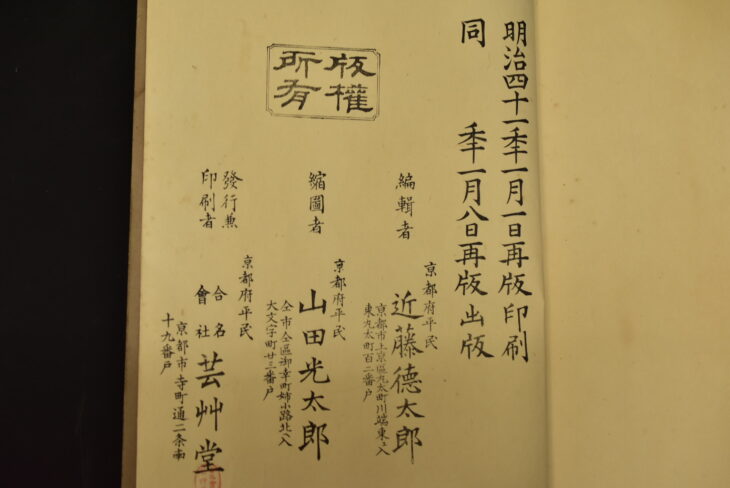 明治四十一秊一月一日再版印刷
同 秊一月八日再版出版
版權
所有
編輯者
京都府平民
近藤德太郎
京都市上京區丸太町川端東入
東丸太町百二番戶
縮圖者
京都府平民
山田光太郎
仝市仝區御幸町姉小路北入
大文字町廿三番戶
發行兼
印刷者
京都府平民
合名
會社
芸艸堂
京都市寺町通二条南
十九番戶